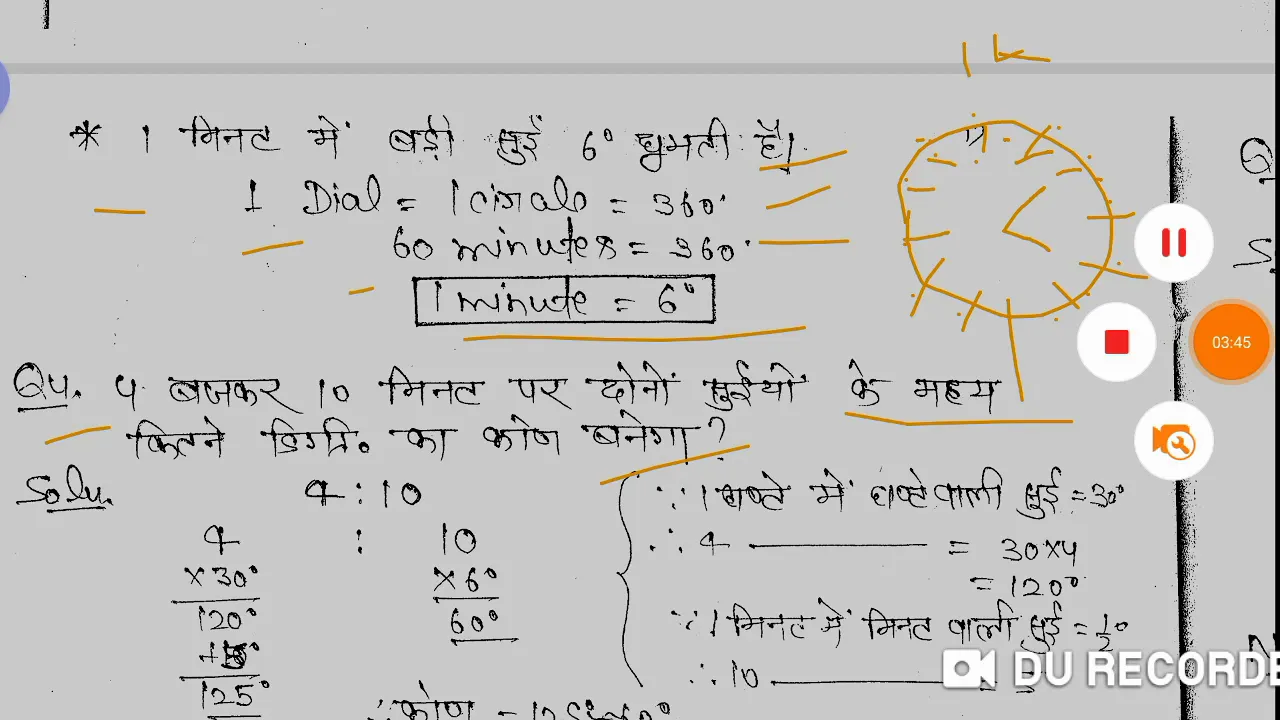 * 1 मिनट में बड़ी सुई 6° घुमती है।
1 Dial = 1 circale = 360°
60 minutes = 360°
1 minute = 6°
Q4. 4 बजकर 10 मिनट पर दोनों सुईयों के मध्य
कितने डिग्री० का कोण बनेगा?
Solu. 4:10
4 : 10
×30° ×6°
120° 60°
+5°
125°
∵ 1 घण्टे में घण्टेवाली सुई = 30°
∴ 4 ——— = 30×4
= 120°
∵ 1 मिनट में मिनट वाली सुई = ½°
∴ 10 ———
∴ कोण =
03:45
DU RECORDE